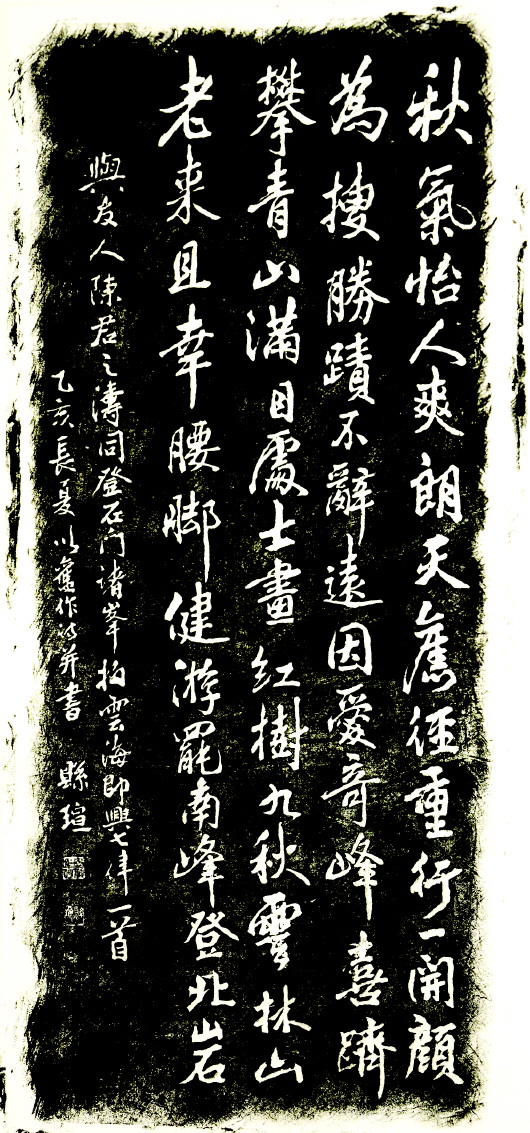 秋氣怡人爽朗天舊徑重行一開顏
為搜勝蹟不辭遠因愛奇峰喜躋
攀青山滿目處士畫紅樹九秋雲林山
老来且幸腰脚健游罷南峰登北岩
與友人陳君之濤同登石门诸峯拍雲海即興七律一首
乙亥長夏以舊作并書 縣瑄